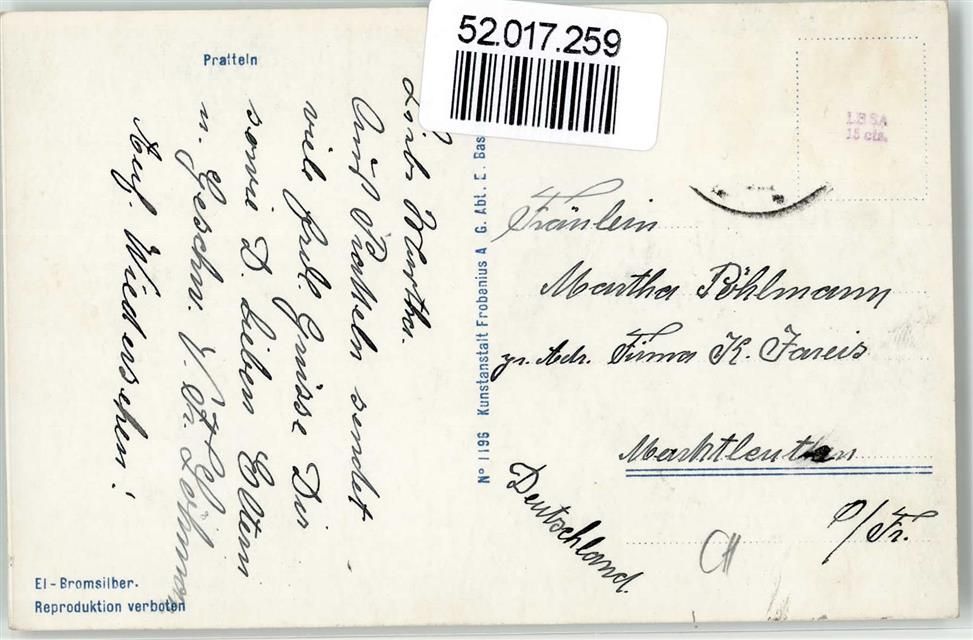 52.017.259
Pratteln
Liebe Martha.
Aus Pratteln sendet
viele frdl. Grüsse Dir
sowie D. lieben Eltern
u. Geschw.
Auf Wiedersehen!
El-Bromsilber.
Reproduktion verboten
No 1196 Kunstanstalt Frobenius A G. Abt. E. Bas
LBSA
15 cts.
Fräulein
Martha Pöhlmann
pr. Adr. Firma K. Jareis
Marktleuthen
O/Fr.
Deutschland.